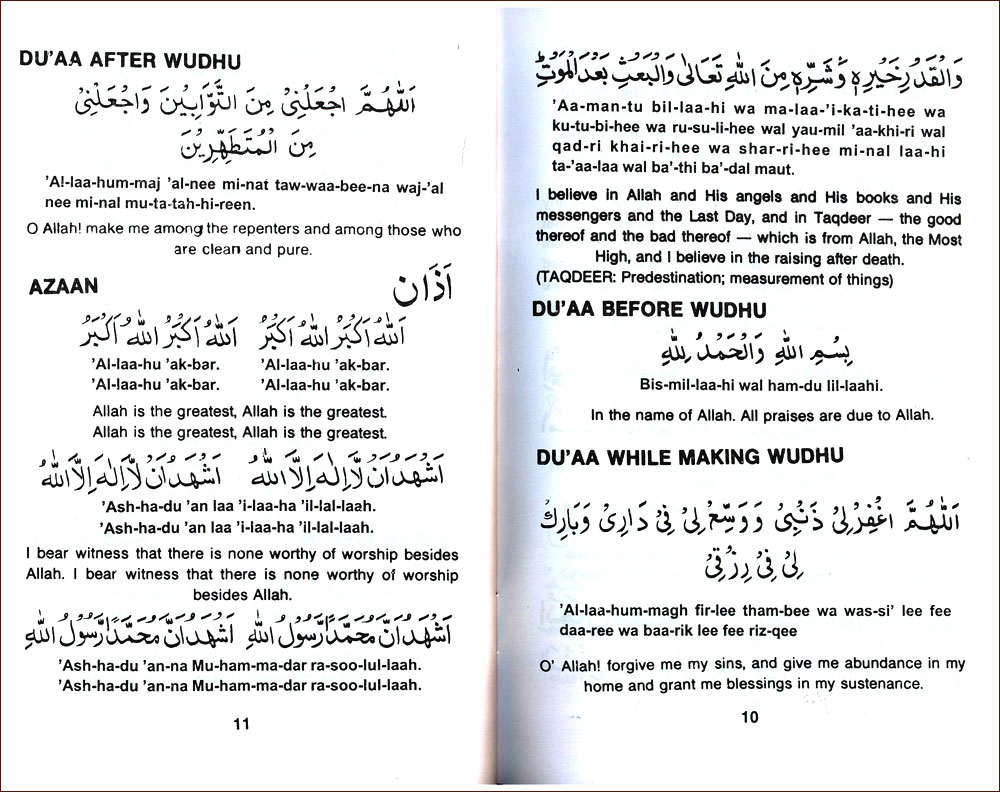 وَالْقَدْرِ خَيْرِهٖ وَشَرِّهٖ مِنَ اللّٰهِ تَعَالٰى وَالْبَعْثِ بَعْدَ الْمَوْتِ
'Aa-man-tu bil-laa-hi wa ma-laa-'i-ka-ti-hee wa
ku-tu-bi-hee wa ru-su-li-hee wal yau-mil 'aa-khi-ri wal
qad-ri khai-ri-hee wa shar-ri-hee mi-nal laa-hi
ta-'aa-laa wal ba'-thi ba'-dal maut.
I believe in Allah and His angels and His books and His
messengers and the Last Day, and in Taqdeer — the good
thereof and the bad thereof — which is from Allah, the Most
High, and I believe in the raising after death.
(TAQDEER: Predestination; measurement of things)
DU'AA BEFORE WUDHU
بِسْمِ اللّٰهِ وَالْحَمْدُ لِلّٰهِ
Bis-mil-laa-hi wal ham-du lil-laahi.
In the name of Allah. All praises are due to Allah.
DU'AA WHILE MAKING WUDHU
اَللّٰهُمَّ اغْفِرْ لِىْ ذَنْبِىْ وَ وَسِّعْ لِىْ فِىْ دَارِىْ وَبَارِكْ
لِىْ فِىْ رِزْقِىْ
'Al-laa-hum-magh fir-lee tham-bee wa was-si' lee fee
daa-ree wa baa-rik lee fee riz-qee
O' Allah! forgive me my sins, and give me abundance in my
home and grant me blessings in my sustenance.
10
DU'AA AFTER WUDHU
اَللّٰهُمَّ اجْعَلْنِىْ مِنَ التَّوَّابِيْنَ وَاجْعَلْنِىْ
مِنَ الْمُتَطَهِّرِيْنَ
'A!-laa-hum-maj 'al-nee mi-nat taw-waa-bee-na waj-'al
nee mi-nal mu-ta-tah-hi-reen.
O Allah! make me among the repenters and among those who
are clean and pure.
AZAAN اَذَان
اَللّٰهُ اَكْبَرُ اَللّٰهُ اَكْبَرُ اَللّٰهُ اَكْبَرُ اَللّٰهُ اَكْبَرُ
'Al-laa-hu 'ak-bar. 'Al-laa-hu 'ak-bar.
'Al-laa-hu 'ak-bar. 'Al-laa-hu 'ak-bar.
Allah is the greatest, Allah is the greatest.
Allah is the greatest, Allah is the greatest.
اَشْهَدُ اَنْ لَّا اِلٰهَ اِلَّا اللّٰهُ اَشْهَدُ اَنْ لَّا اِلٰهَ اِلَّا اللّٰهُ
'Ash-ha-du 'an laa 'i-laa-ha 'il-lal-laah.
'Ash-ha-du 'an laa 'i-laa-ha 'il-lal-laah.
I bear witness that there is none worthy of worship besides
Allah. I bear witness that there is none worthy of worship
besides Allah.
اَشْهَدُ اَنَّ مُحَمَّدًا رَّسُوْلُ اللّٰهِ اَشْهَدُ اَنَّ مُحَمَّدًا رَّسُوْلُ اللّٰهِ
'Ash-ha-du 'an-na Mu-ham-ma-dar ra-soo-lul-laah.
'Ash-ha-du 'an-na Mu-ham-ma-dar ra-soo-lul-laah.
11